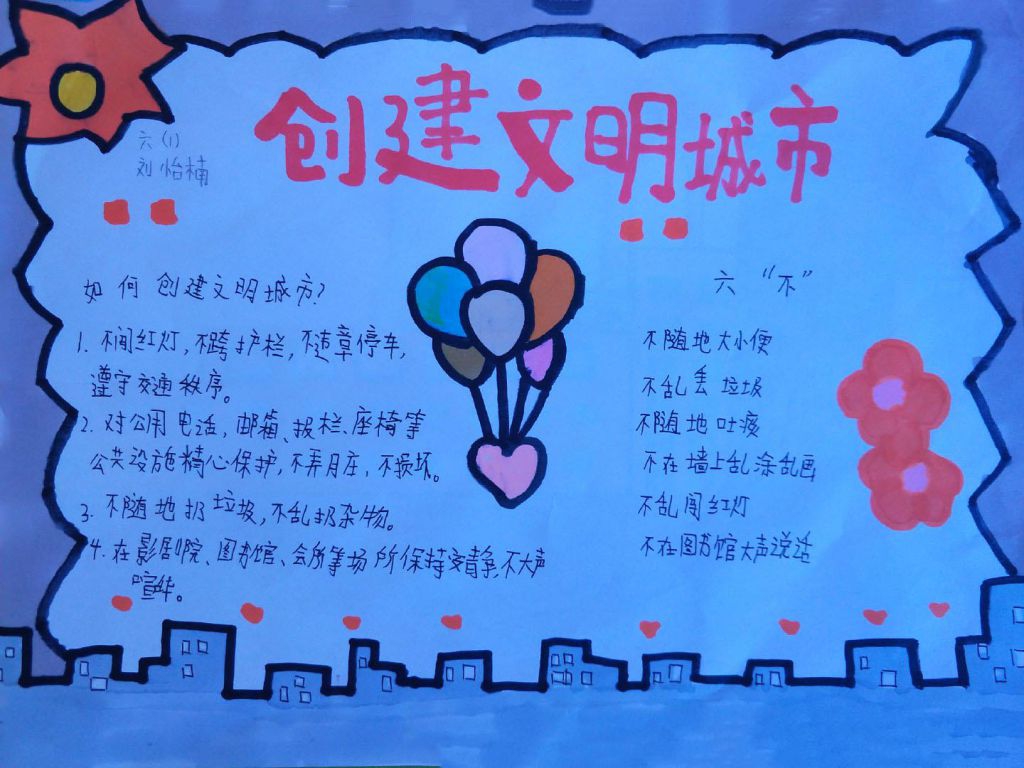 创建文明城市
六(1)
刘怡楠
如何创建文明城市?
1. 不闯红灯,不跨护栏,不违章停车,
遵守交通秩序。
2. 对公用电话,邮箱、报栏、座椅等
公共设施精心保护,不弄脏,不损坏。
3. 不随地扔垃圾,不乱扔杂物。
4. 在影剧院、图书馆、会所等场所保持安静,不大声
喧哗。
六“不”
不随地大小便
不乱丢垃圾
不随地吐痰
不在墙上乱涂乱画
不乱闯红灯
不在图书馆大声说话